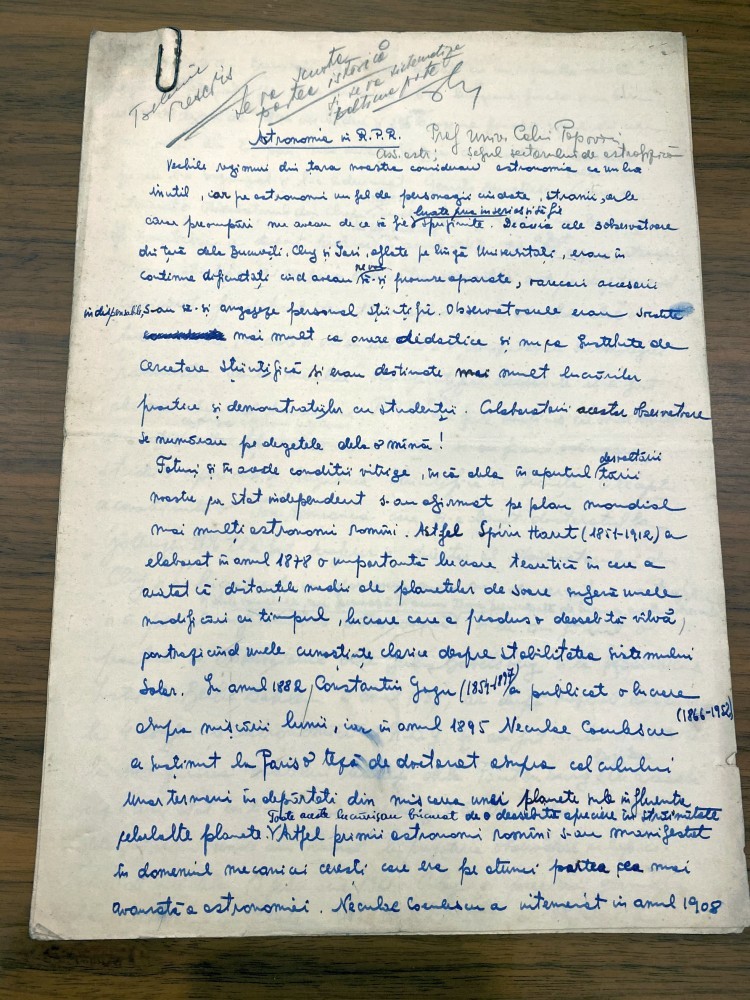 se va scurta
partea istorică
și se va sistematiza
ultima parte
Astronomia în R.P.R.
Prof. Univ. Călin Popovici
As. astr; Șeful sectorului de astrofizică
Vechile regimuri din țara noastră considerau astronomia ca un lux
inutil, iar pe astronomi un fel de personagii ciudate, stranii, ale
luate prea in serios și să fie
căror preocupări nu aveau de ce să fie sprijinite. De aceia cele 3 observatoare
din țară dela București, Cluj și Iasi, aflate pe lîngă Universitati, erau în
nevoie
continue dificultăți cînd aveau să-și procure aparate, accesorii
indispensabile, s-au să-și angajeze personal științific. Observatoarele erau socotite
mai mult ca anexe didactice și nu ca Institute de
cercetare științifică și erau destinate mai mult lucrărilor
practice și demonstrațiilor cu studenții. Colaboratorii acestor observatoare
se numărau pe degetele dela o mînă!
Totuși și în aceste condiții vitrige, încă dela începutul
desvoltării
țării
noastre ca Stat independent s-au afirmat pe plan mondial
mai mulți astronomi romîni. Astfel Spiru Haret (1851-1912) a
elaborat în anul 1878 o importantă lucrare teoretică în care a
arătat că distanțele medii ale planetelor de soare sufera unele
modificări cu timpul, lucrare care a produs o deosebită vîlvă,
contrazicînd unele cunoștințe clasice despre stabilitatea sistemului
Solar. În anul 1882, Constantin Gogu (1854-1897) a publicat o lucrare
asupra mișcării lunii, iar în anul 1895 Neculae Coculescu (1866-1952)
a susținut la Paris o teză de doctorat asupra calculului
unor termeni îndepărtati din miscarea unei planete sub influența
Toate aceste lucrări s-au bucurat de o deosebita apreciere în străinătate
celeilalte planete. Astfel primii astronomi romîni s-au manifestat
în domeniul mecanicei cerești care era pe atunci partea cea mai
avansată a astronomiei. Neculae Coculescu a intemeiat in anul 1908